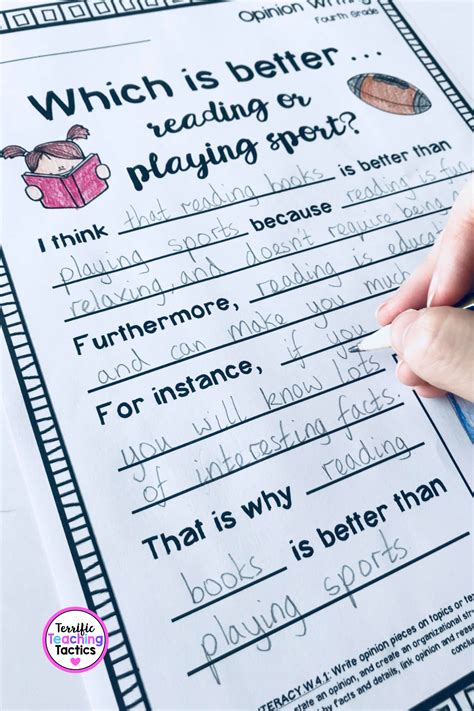 Opinion Wri
Fourth Grade
Which is better...
reading or
playing sport?
I think that reading books is better than
playing sports because reading is fun
relaxing, and doesn't require being
Furthermore, reading is educa
and can make you much
For instance, if you
you will know lots
of interesting facts.
That is why reading
books is better than
playing sports
Terrific
Teaching
Tactics
ITERACY W.4.1: Write opinion pieces on topics or te
state an opinion, and create an organizational str
by facts and details, link opinion and reaso